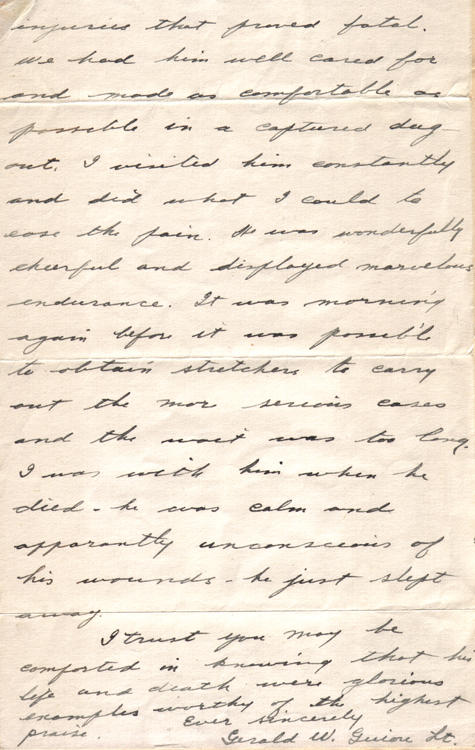 injuries that proved fatal.
We had him well cared for
and made as comfortable as
possible in a captured dug-
out. I visited him constantly
and did what I could to
ease the pain. He was wonderfully
cheerful and displayed marvelous
endurance. It was morning
again before it was possible
to obtain stretchers to carry
out the mor serious cases
and the wait was too long.
I was with him when he
died - he was calm and
apparantly unconscious of
his wounds - he just slept
away.
I trust you may be
comforted in knowing that his
life and death were glorious
examples worthy of the highest
praise.
Ever Sincerely
Gerald W. Lt.